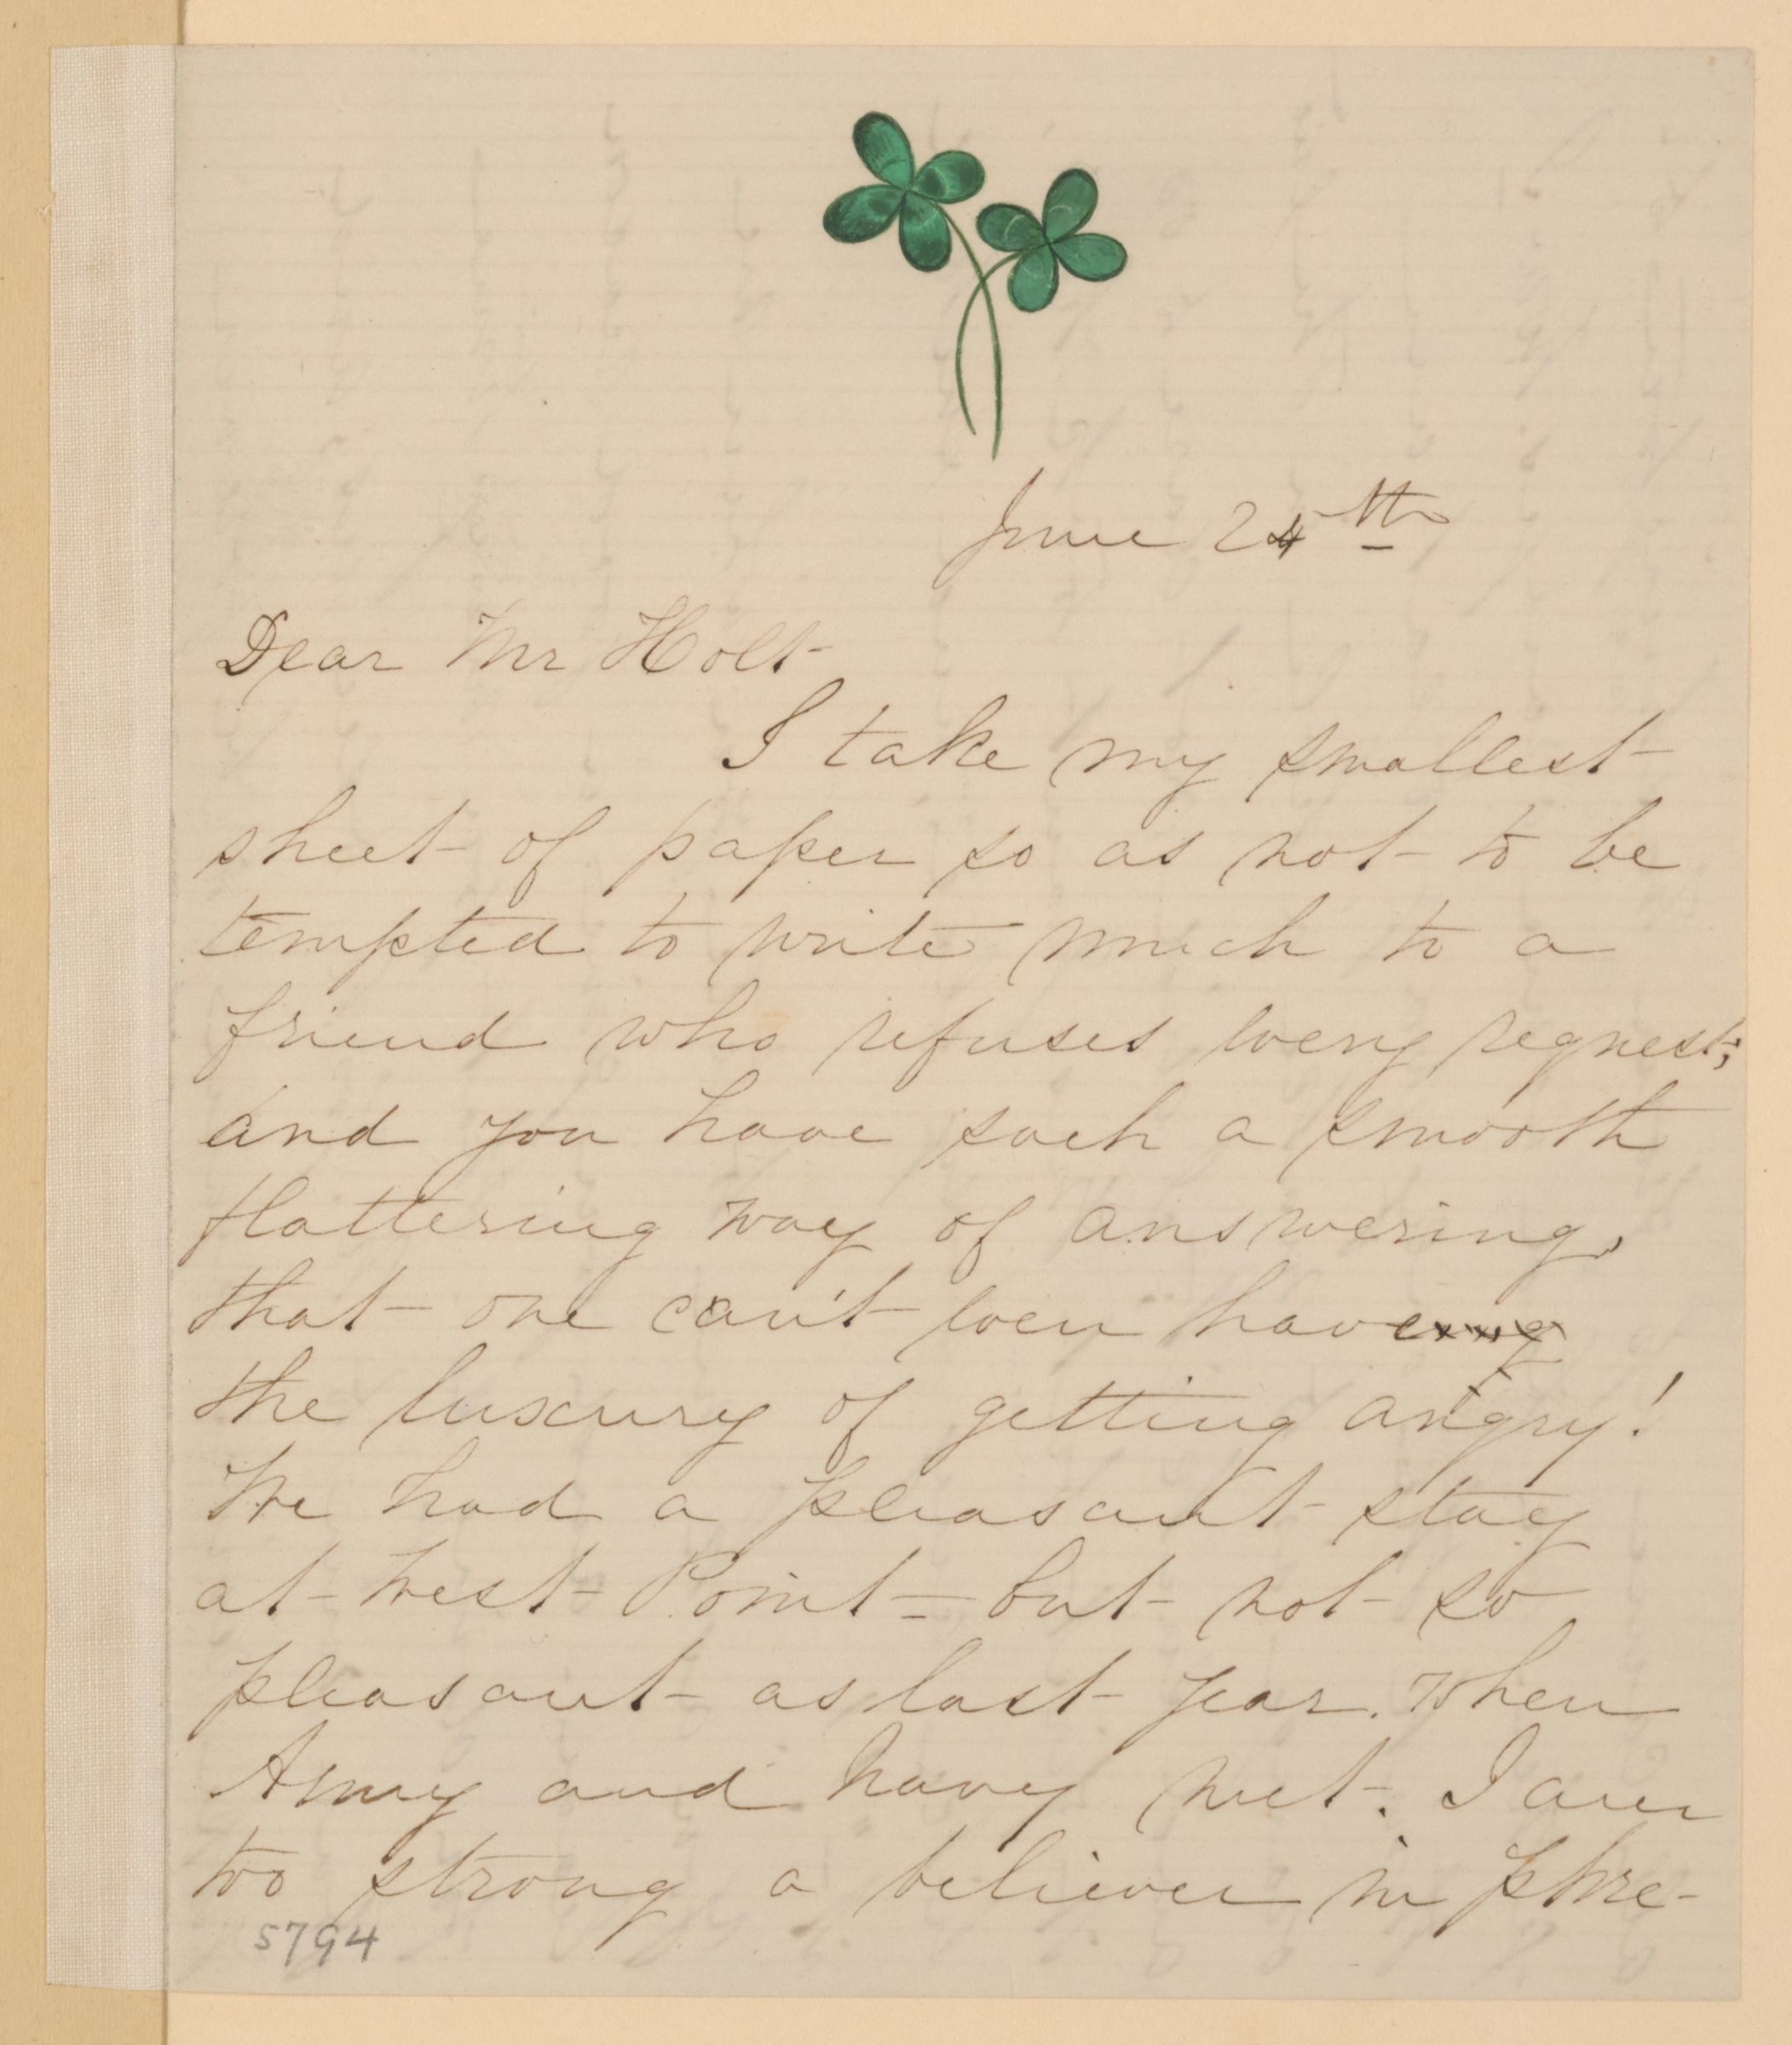 June 24th
Dear Mr Holt
I take my smallest
sheet of paper so as not to be
tempted to write much to a
friend who refuses every request;
and you have such a smooth
flattering way of answering,
that one can't even have
the luxury of getting angry!
We had a pleasant stay
at West Point - but not so
pleasant as last year. When
Army and Navy met. I am
too strong a believer in phre-
5794